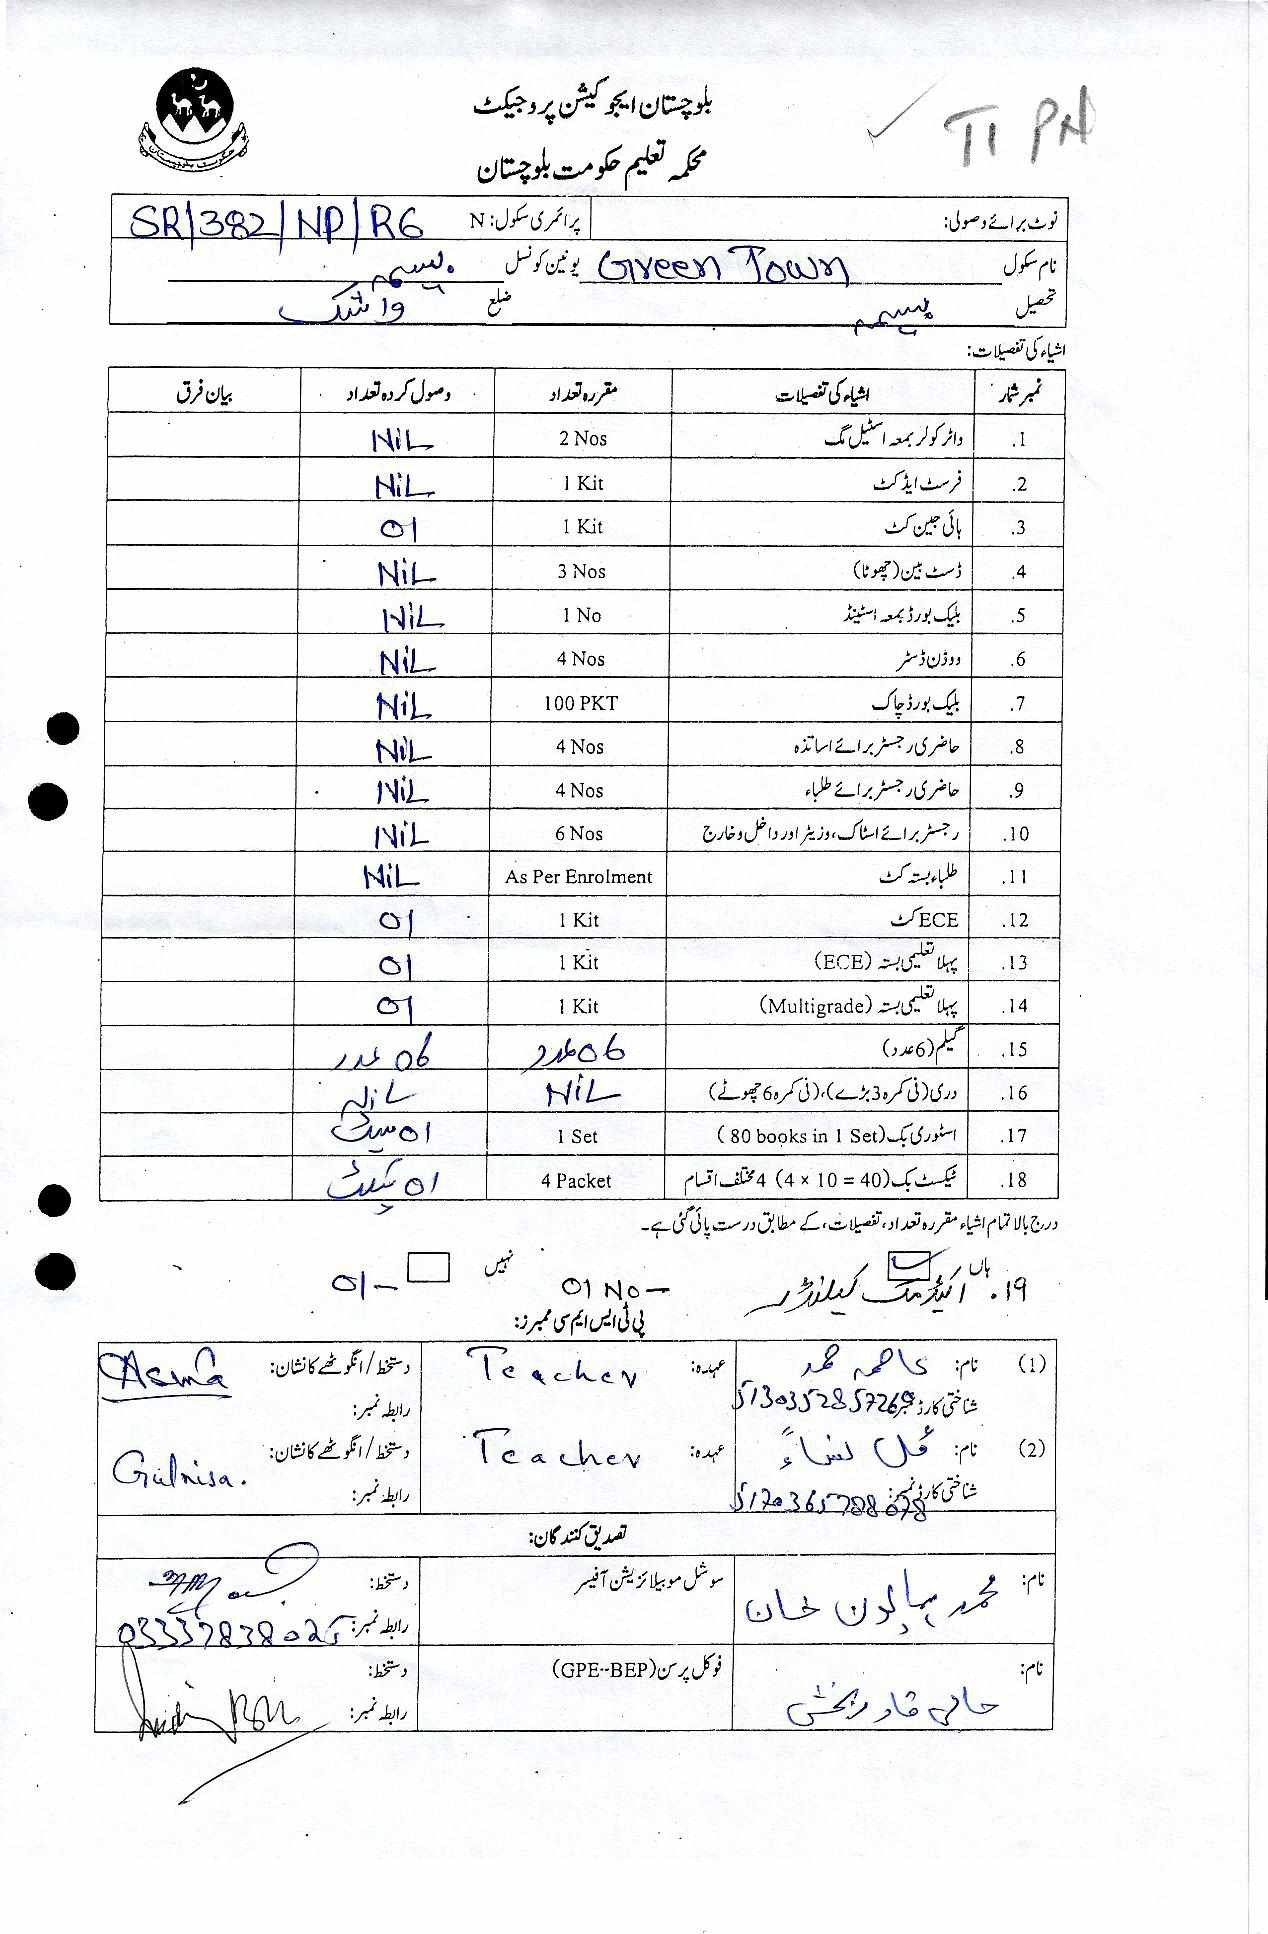 بلوچستان ایجوکیشن پروجیکٹ
محکمہ تعلیم حکومت بلوچستان
T1 PA
نوٹ برائے وصولی: پرائمری سکول: N SR/382/NP/R6
نام سکول Green Town یونین کونسل بسیمہ
تحصیل بسیمہ ضلع واشک
اشیاء کی تفصیلات:
نمبر شمار اشیاء کی تفصیلات مقررہ تعداد وصول کردہ تعداد بیان فرق
1. واٹر کولر بمعہ اسٹیل مگ 2 Nos NiL
2. فرسٹ ایڈ کٹ 1 Kit NiL
3. ہائی جین کٹ 1 Kit 01
4. ڈسٹ بین (چھوٹا) 3 Nos NiL
5. بلیک بورڈ بمعہ اسٹینڈ 1 No NiL
6. ووڈن ڈسٹر 4 Nos NiL
7. بلیک بورڈ چاک 100 PKT NiL
8. حاضری رجسٹر برائے اساتذہ 4 Nos NiL
9. حاضری رجسٹر برائے طلباء 4 Nos NiL
10. رجسٹر برائے اسٹاک، وزیٹر اور داخل و خارج 6 Nos NiL
11. طلباء بستہ کٹ As Per Enrolment NiL
12. ECE کٹ 1 Kit 01
13. پہلا تعلیمی بستہ (ECE) 1 Kit 01
14. پہلا تعلیمی بستہ (Multigrade) 1 Kit 01
15. گلیم (6 عدد) 06 عدد 06 عدد
16. دری (فی کمرہ 3 بڑے)، (فی کمرہ 6 چھوٹے) NiL NiL
17. اسٹوری بک (80 books in 1 Set) 1 Set 01 سیٹ
18. ٹیکسٹ بک (4 x 10 = 40) 4 مختلف اقسام 4 Packet 01 پیکٹ
درج بالا تمام اشیاء مقررہ تعداد، تفصیلات، کے مطابق درست پائی گئی ہے۔
ہاں نہیں
۱۹. اکیڈمک کیلنڈر 01 No — 01 —
پی ٹی ایس ایم سی ممبرز:
(1) نام: عاصمہ محمد عہدہ: Teacher دستخط/انگوٹھے کا نشان: Asma
شناختی کارڈ نمبر: 5130352857269 رابطہ نمبر:
(2) نام: گل نساء عہدہ: Teacher دستخط/انگوٹھے کا نشان: Gulnisa.
شناختی کارڈ نمبر: رابطہ نمبر:
تصدیق کنندگان:
نام: محمد ہمایون خان سوشل موبیلائزیشن آفیسر دستخط:
رابطہ نمبر: 03337838025
نام: حاجی قادر بخش فوکل پرسن (GPE--BEP) دستخط:
رابطہ نمبر: